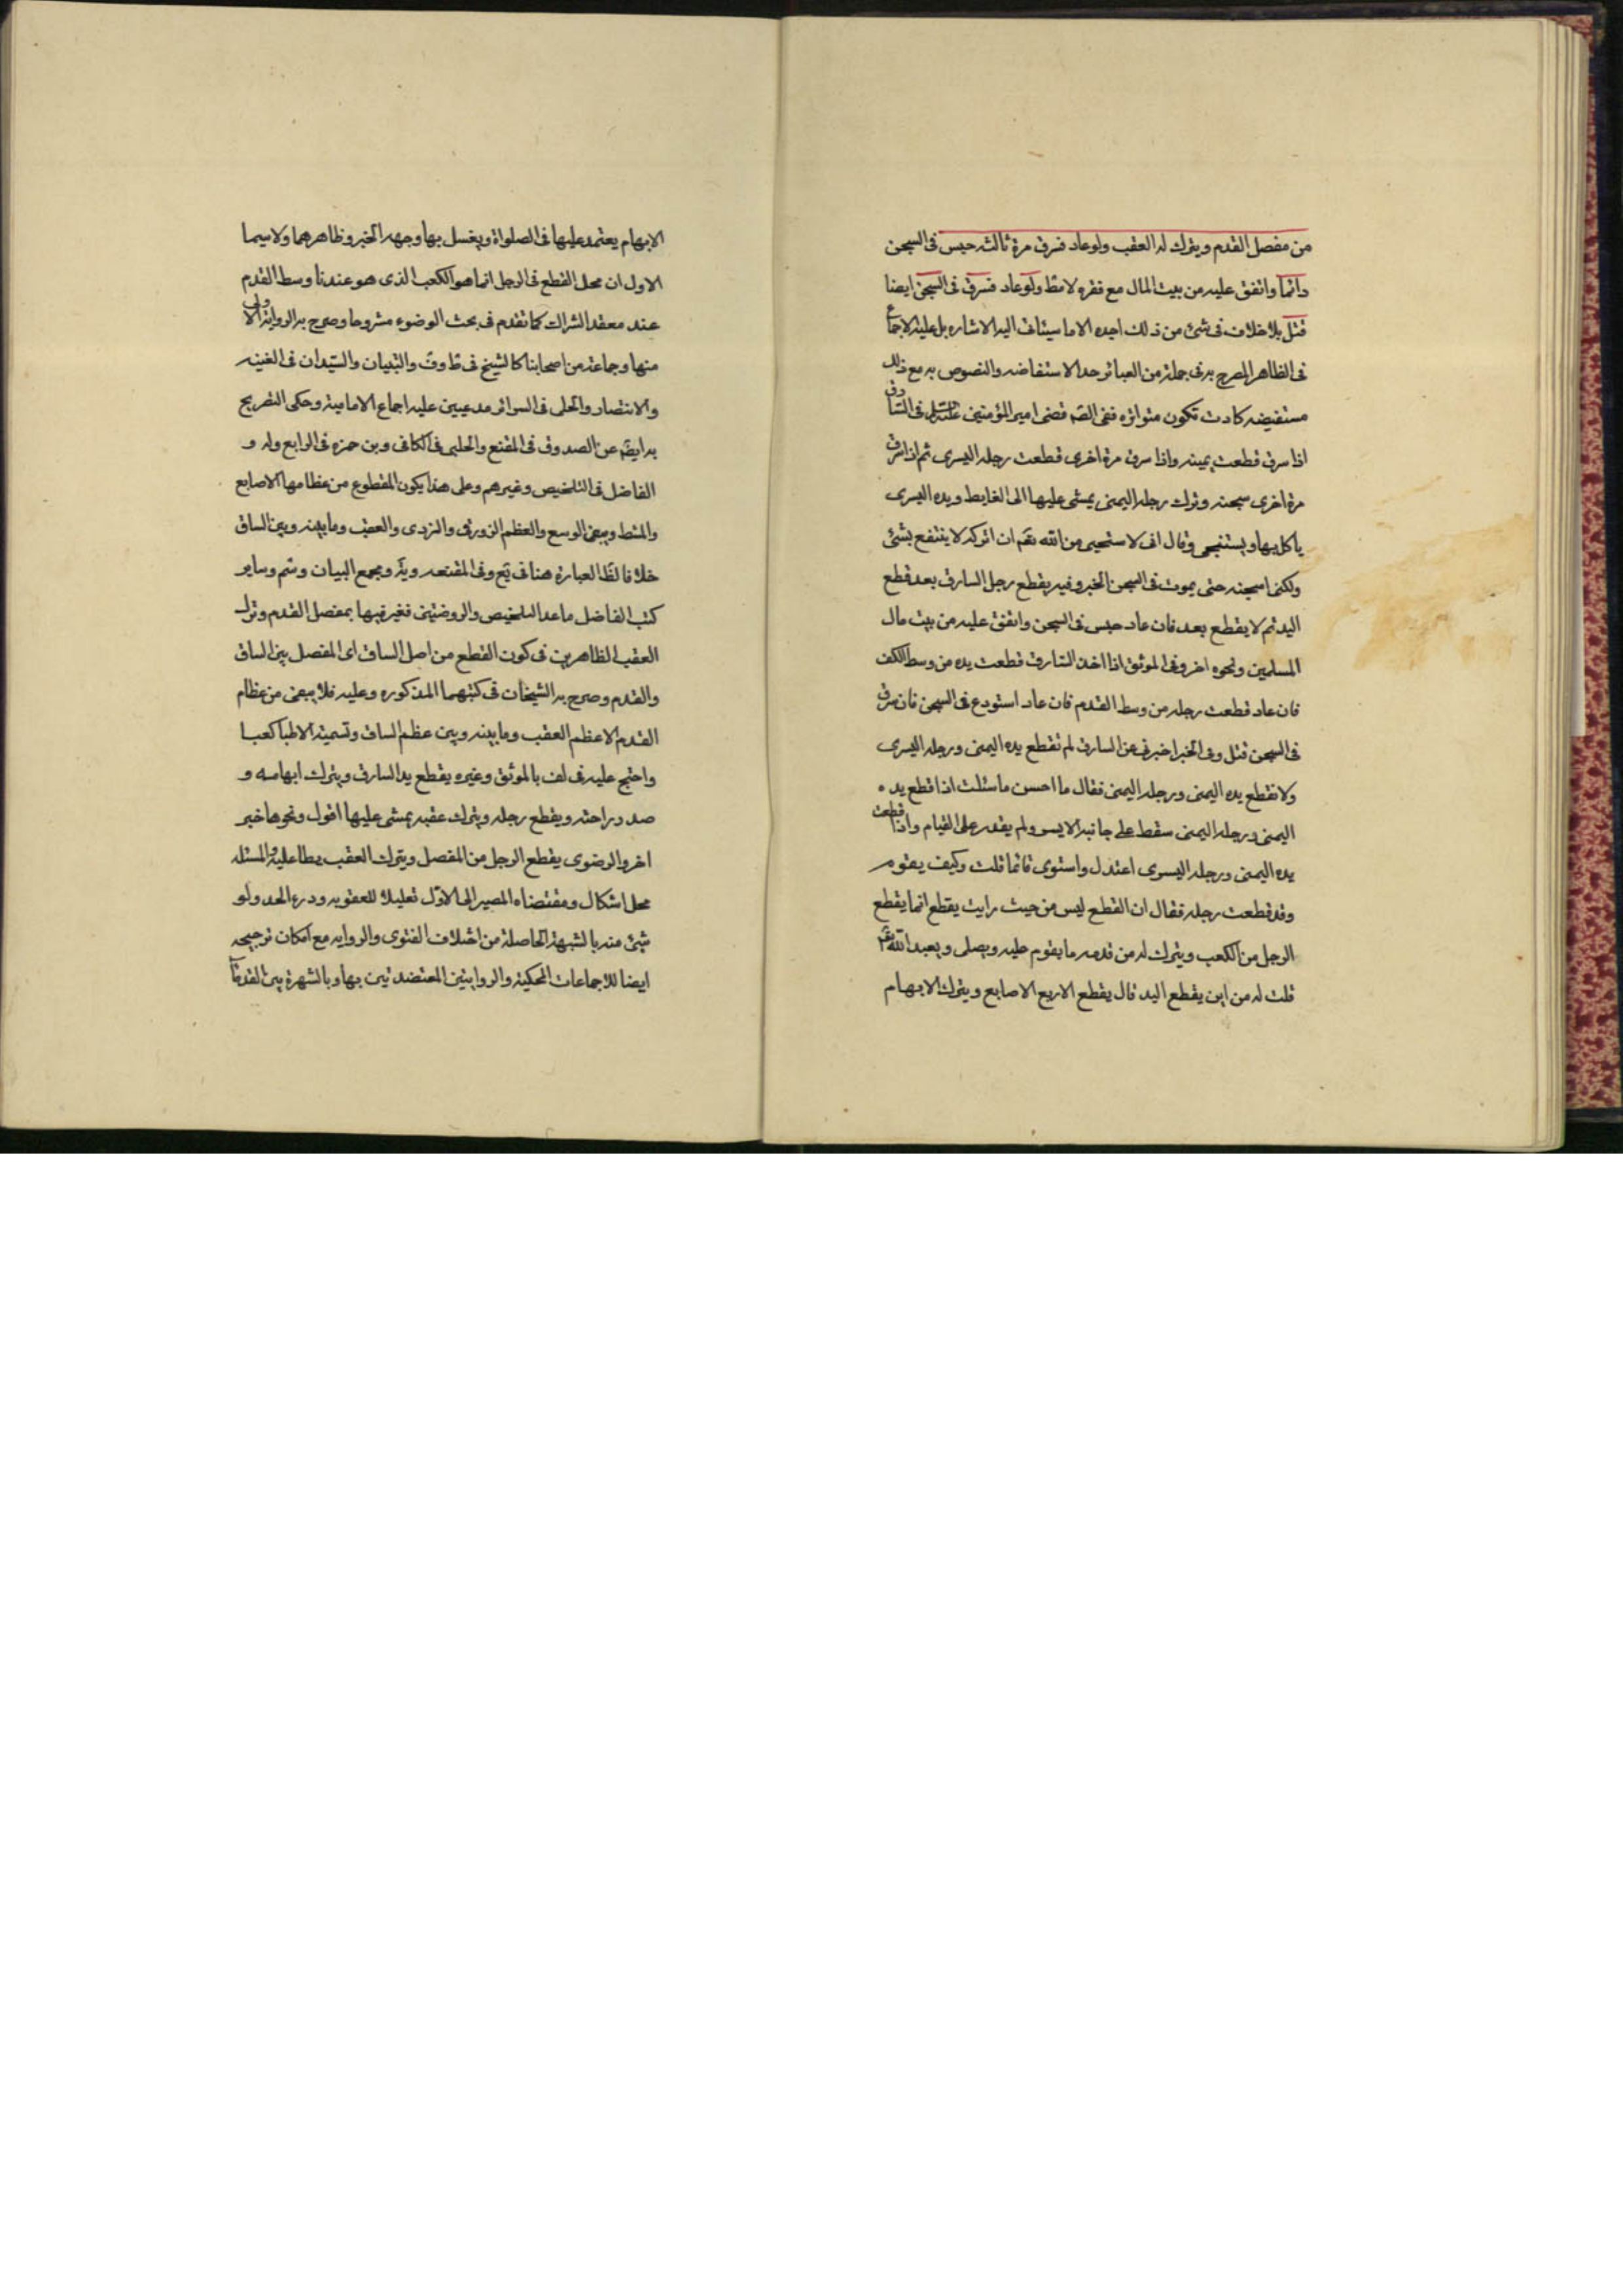 من مفصل القدم ويترك له العقب ولو عاد فسرق مرة ثالثه حبس فى السجن
دائما وانفق عليه من بيت المال مع فقره لا مط ولو عاد فسرق فى السجن ايضا
قتل بلا خلاف فى شئ من ذلك اجده الا ما سيتاف اليه الاشاره بل عليه الاجماع
فى الظاهر المصرح به فى جملة من العبائر حد الاستفاضه والنصوص به مع ذلك
مستفيضه كادت تكون متواتره ففى الصّم قضى امير المؤمنين فى السارق
اذا سرق قطعت يمينه واذا سرق مرة اخرى قطعت رجله اليسرى ثم اذا سرق
مرة اخرى سجنه وترك رجله اليمنى يمشى عليها الى الغايط ويده اليسرى
ياكل بها ويستنجى وقال انى لاستحيى من الله تقم ان اتركه لا ينتفع بشئ
ولكنى اسجنه حتى يموت فى السجن الخبر وفيه يقطع رجل السارق بعد قطع
اليد ثم لا يقطع بعد فان عاد حبس فى السجن وانفق عليه من بيت مال
المسلمين ونحوه اخر وفى الموثق اذا اخذ السارق قطعت يده من وسط الكف
فان عاد قطعت رجله من وسط القدم فان عاد استودع فى السجن فان سرق
فى السجن قتل وفى الخبر اخبرنى عن السارق لم تقطع يده اليمنى ورجله اليسرى
ولا تقطع يده اليمنى ورجله اليمنى فقال ما احسن ما سئلت اذا قطع يده
اليمنى ورجله اليمنى سقط على جانبه الايسر ولم يقدر على القيام واذا قطعت
يده اليمنى ورجله اليسرى اعتدل واستوى قائما قلت وكيف يقوم
وقد قطعت رجله فقال ان القطع ليس من حيث رايت يقطع انما يقطع
الرجل من الكعب ويترك له من قدمه ما يقوم عليه ويصلى ويعبد الله تقم
قلت له من اين يقطع اليد قال يقطع الاربع الاصابع ويترك الابهام
الابهام يعتمد عليها فى الصلواة ويغسل بها وجهه الخبر وظاهرهما ولا سيما
الاول ان محل القطع فى الرجل انما هو الكعب الذى هو عندنا وسط القدم
عند معقد الشراك كما تقدم فى بحث الوضوء مشروحا وصرح به الروايه الاولى
منها وجماعة من اصحابنا كالشيخ فى ط وف والتبيان والسّيدان فى الغنيه
والانتصار والحلى فى السرائر مدعيين عليه اجماع الاماميه وحكى التصريح
به ايضم عن الصدوق فى المقنع والحلبى فى الكافى وبن حمزه فى الرابع وله و
الفاضل فى التلخيص وغيرهم وعلى هذا يكون المقطوع من عظامها الاصابع
والمشط ويبقى الرسغ والعظم الزورقى والنردى والعقب وما بينه وبين الساق
خلافا لظ العبارة هنا فى يع وفى المقنعه ويه ومجمع البيان وسم وساير
كتب الفاضل ما عدا التلخيص والروضتين فغير فيها بمفصل القدم وترك
العقب الظاهرين فى كون القطع من اصل الساق اى المفصل بين الساق
والقدم وصرح به الشيخان فى كتبهما المذكوره وعليه فلا يبقى من عظام
القدم الا عظم العقب وما بينه وبين عظم الساق وتسميه الاطبا كعبا
واحتج عليه فى لف بالموثق وغيره يقطع يد السارق ويترك ابهامه و
صدر راحته ويقطع رجله ويترك عقبه يمشى عليها اقول ونحوها خبر
اخر والرضوى يقطع الرجل من المفصل ويترك العقب يطا عليه والمسئله
محل اشكال ومقتضاه المصير الى الاوّل تعليلا للعقوبه ودرء الحد ولو
شئ منه بالشبهة الحاصلة من اختلاف الفتوى والروايه مع امكان ترجيحه
ايضا للاجماعات المحكية والروايتين المعتضدتين بها وبالشهرة بين القدماء